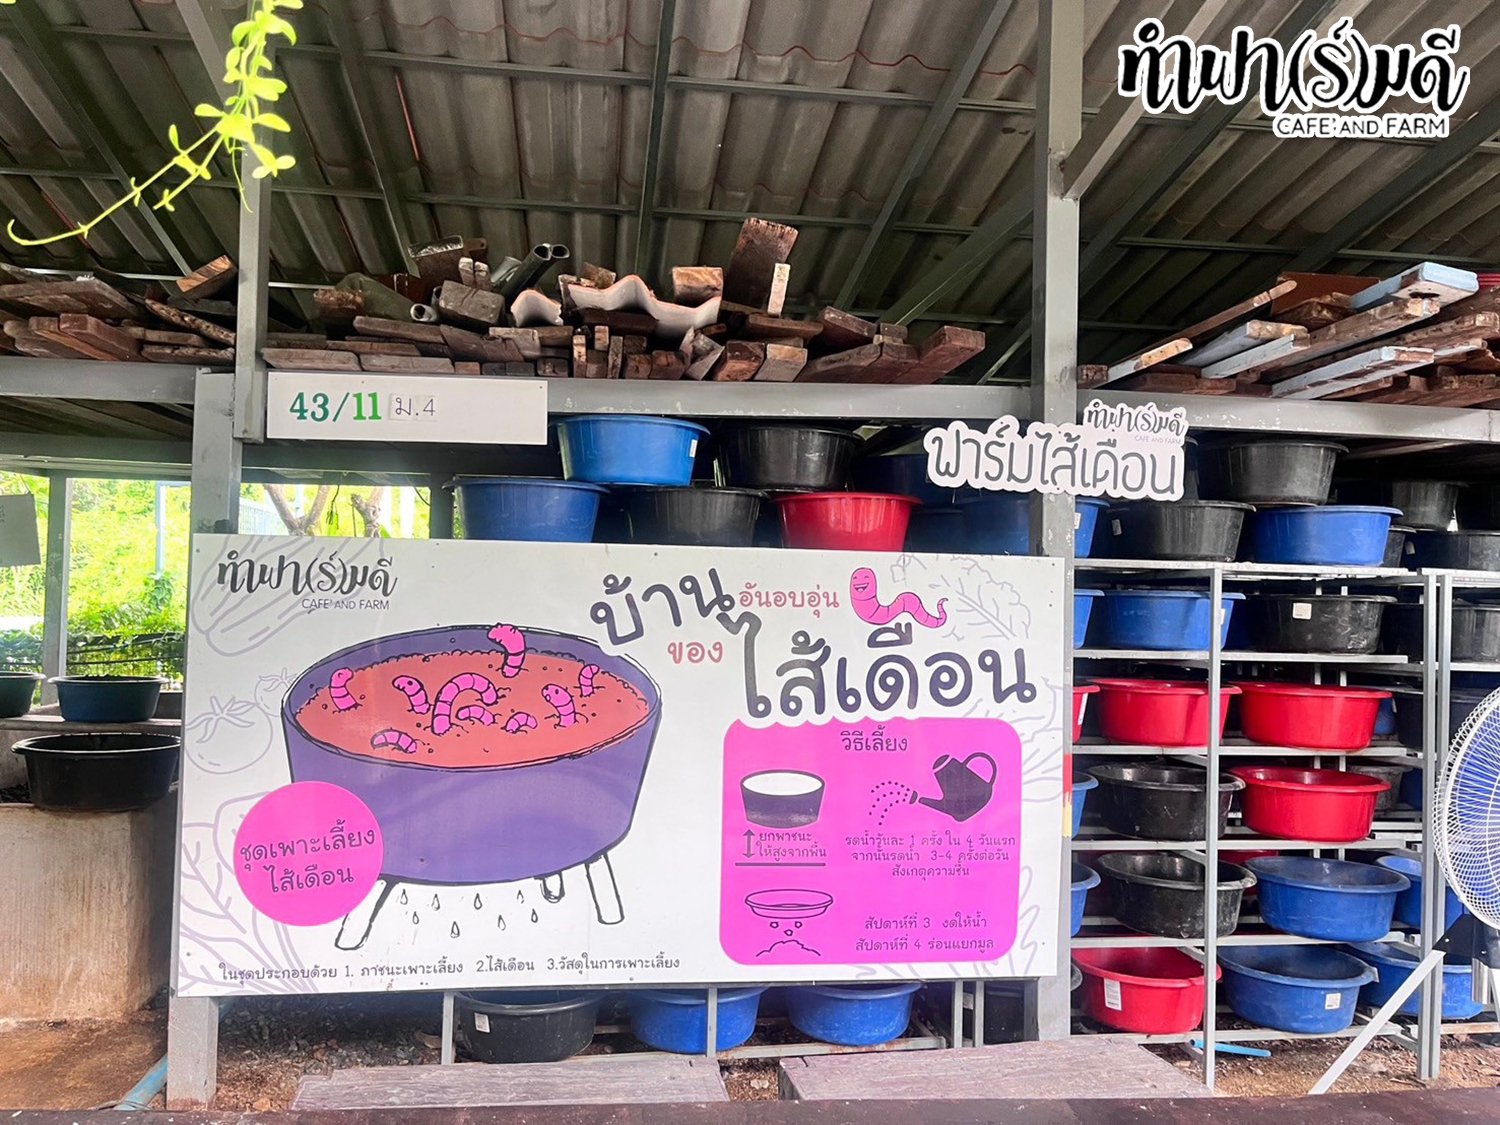 ทำฟา(ร์)มดี
CAFE' AND FARM
43/11 ม.4
ทำฟา(ร์)มดี
CAFE' AND FARM
ฟาร์มไส้เดือน
ทำฟา(ร์)มดี
CAFE' AND FARM
บ้านอันอบอุ่น
ของไส้เดือน
วิธีเลี้ยง
ยกพาชนะ
ให้สูงจากพื้น
รดน้ำวันละ 1 ครั้ง ใน 4 วันแรก
จากนั้นรดน้ำ 3-4 ครั้งต่อวัน
สังเกตุความชื้น
สัปดาห์ที่ 3 งดให้น้ำ
สัปดาห์ที่ 4 ร่อนแยกมูล
ชุดเพาะเลี้ยง
ไส้เดือน
ในชุดประกอบด้วย 1. ภาชนะเพาะเลี้ยง 2.ไส้เดือน 3.วัสดุในการเพาะเลี้ยง